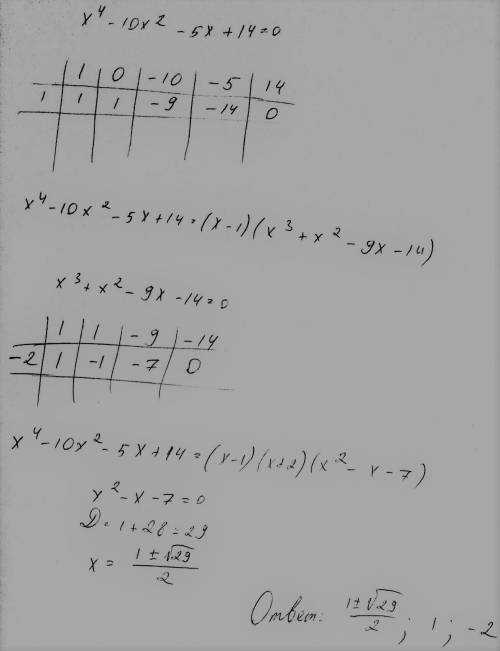 x⁴-10x²-5x+14=0
1 0 -10 -5 14
1 1 1 -9 -14 0
x⁴-10x²-5x+14=(x-1)(x³+x²-9x-14)
x³+x²-9x-14=0
1 1 -9 -14
-2 1 -1 -7 0
x⁴-10x²-5x+14=(x-1)(x+2)(x²-x-7)
x²-x-7=0
D=1+28=29
x= (1±√29)/2
Ответ: (1±√29)/2; 1; -2